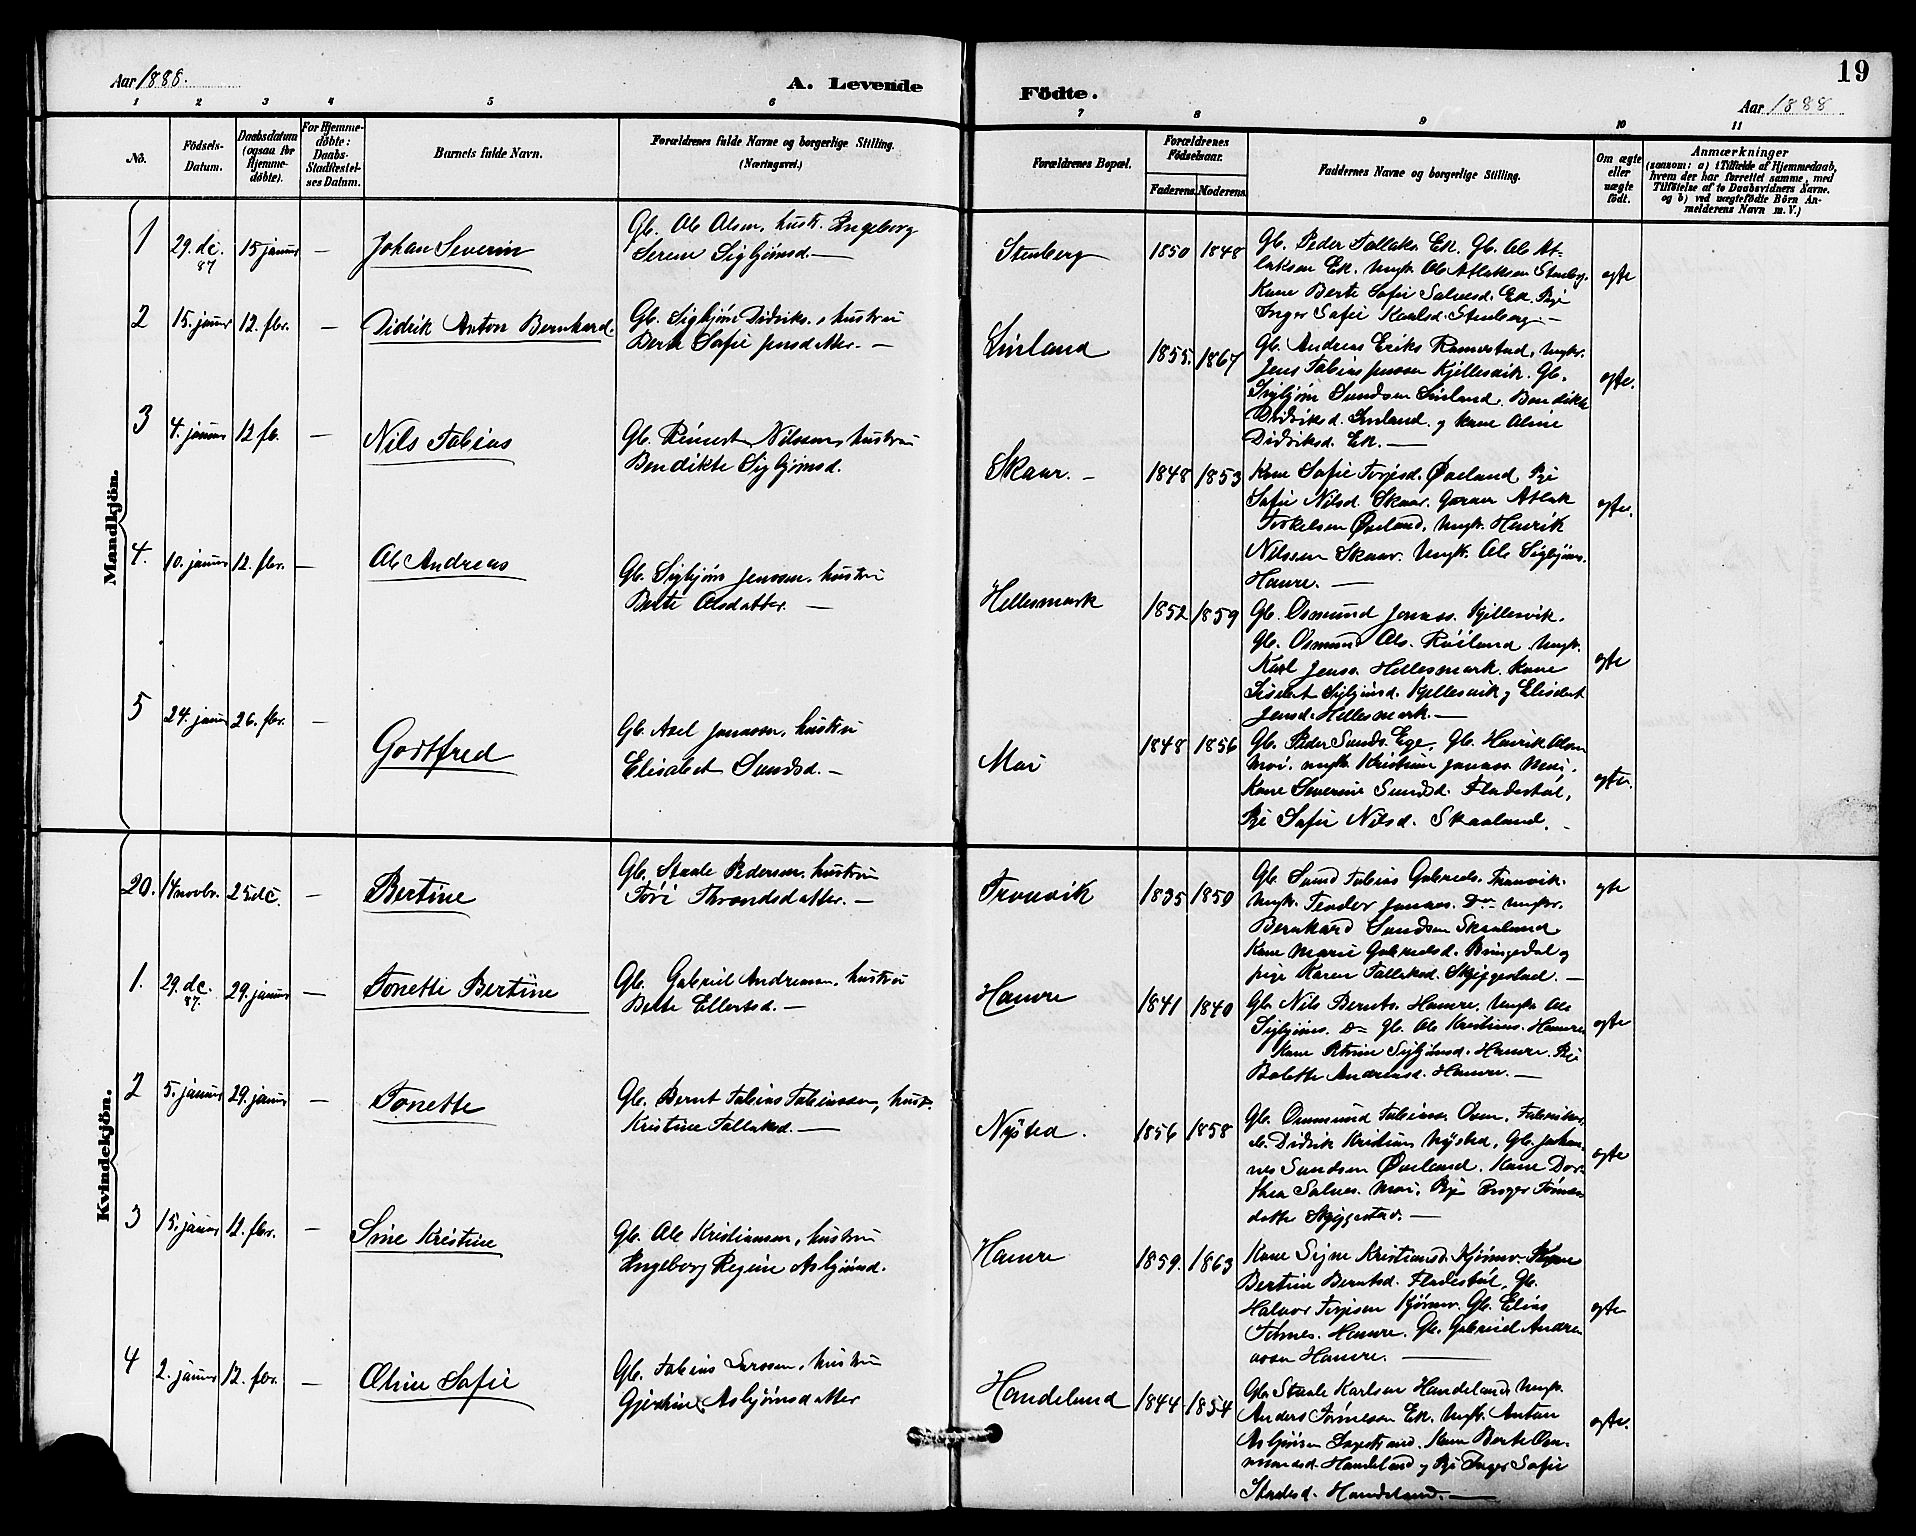 19
Aar 1888.
A. Levende Födte.
Aar 1888
1 2 3 4 5 6 7 8 9 10 11
No.
Födsels-Datum.
Daabsdatum (ogsaa for Hjemme-döbte).
For Hjemme-döbte: Daabs-Stadfæstel-ses Datum.
Barnets fulde Navn.
Forældrenes fulde Navne og borgerlige Stilling.
(Næringsvei.)
Forældrenes Bopæl.
Forældrenes Födselsaar.
Faderens. Moderens.
Faddernes Navne og borgerlige Stilling.
Om ægte eller uægte födt.
Anmærkninger
(saasom: a) i Tilfælde af Hjemmedaab,
hvem der har forrettet samme, med
Tilföielse af to Daabsvidners Navne.
og b) ved uægtefödte Börn An-
melderens Navn m. V.)
Mandkjön.
1 29. dec. 87 15 januar — Johan Severin
Gb. Ole Olsen, hustr. Ingeborg
Serene Sigbjørnsd. —
Stenberg 1850 1848
Gb. Peder Tallaks. Ek. Gb. Ole At-
laksen Ek. Ungk. Ole Atlaksen Stenberg.
Kone Berte Sofie Salvesd. Ek. Pige
Inger Sofie Karlsd. Stenberg. —
ægte
2 15. januar 12. fbr. — Didrik Anton Bernhard.
Gb. Sigbjørn Didriks., hustru
Berte Sofie Jensdatter. —
Linland 1855. 1867
Gb. Andreas Eriks. Ramestad, Ungkr.
Jens Tobias Jenssen Kjellesvik. Gb.
Sigbjørn Sundsen Linland. Bendikte
Didriksd. Linland. og kone Aline
Didriksd. Ek. —
ægte.
3 4. januar 12 fb. — Nils Tobias
Gb. Reinert Nilssen, hustru
Bendikte Sigbjørnsd.
Skaar. — 1848 1853
Kone Sofie Torjesd. Øveland, Pige
Sofie Nilsd. Skaar. Atlak
Torkelsen Øveland, Ungk. Henrik
Nilssen Skaar. Ungk. Ole Sigbjørns.
Hamre. —
ægte.
4. 10. januar 12. fbr. — Ole Andreas
Gb. Sigbjørn Jenssen, hustru
Berte Olsdatter. —
Hellesmark 1852 1859
Gb. Osmund Jenss. Kjellesvik.
Gb. Osmund Ols. Røiland. Ungk.
Karl Jenss. Hellesmark. Kone
Lisbet Sigbjørnsd. Kjellesvik og Elisabet
Jensd. Hellesmark. —
ægte
5 24. januar 26. fbr. — Godtfred
Gb. Axel Jonassen, hustru
Elisabet Sundsd. —
Moi 1848 1856
Gb. Peder Sunds. Ege, Gb. Henrik Olsen
Moi. Ungk. Kristian Jonass. Moi.
Kone Severine Sundsd. Fladestøl,
Pige Sofie Nilsd. Skaaland. —
ægte.
Kvindekjön.
20. 14 novbr. 25 dec. — Bertine
Gb. Staale Pedersen, hustru
Tøri Throndsdatter. —
Tronvik 1835 1850
Gb. Sund Tobias Gabriels. Tronvik.
Ungk. Teodor Jonass. Do Ungkr.
Bernhard Sundsen Skaaland
Kone Marie Gabrielsd. Bringedal og
pige Karen Tallaksd. Skjeggestad. —
ægte
1. 29. dec. 87. 29. januar — Tonette Bertine
Gb. Gabriel Andreassen, hustru
Berte Ellertsd. —
Hamre 1841 1840
Gb. Nils Bernts. Hamre, Ungk. Ole
Sigbjørns. Do Gb. Ole Kristians. Hamre.
Kone Petrine Sigbjørnsd. Hamre. Pige
Bolette Andreasd. Hamre. —
ægte
2 5. januar 29. januar — Tonette
Gb. Bernt Tobias Tobiassen, hustr.
Kristine Tallaksd. —
Nysted. 1856 1858
Gb. Ommund Tobias.
Didrik Kristians. Nysted, Gb. Johan-
nes Sundsen Øveland. Kone Dor-
thea Salves. Moi, Pige
datte Skjeggestad. —
ægte
3 15. januar 12. fbr. — Sine Kristine
Gb. Ole Kristiansen, hustru
Ingeborg Regine Asbjørnsd.
Hamre 1859. 1863
Kone Signe Kristiansd. Kjørmo.
Bertine Berntsd. Fladestøl, Gb.
Halvor Torjesen Kjørmo. Gb. Elias
Tønnes. Hamre. Gb. Gabriel Andre-
assen Hamre. —
ægte
4 2. januar 12. fbr. — Oline Sofie
Gb. Tobias Larssen, hustru
Gjertine Asbjørnsdatter
Handeland 1844 1854
Gb. Staale Karlsen Handeland. Ungk.
Anders Tønnesen Ek. Ungk. Anton
Asbjørnsen. Kone Berte Om-
mundsd. Handeland og Pige Inger Sofie
Staalesd. Handeland. —
ægte.